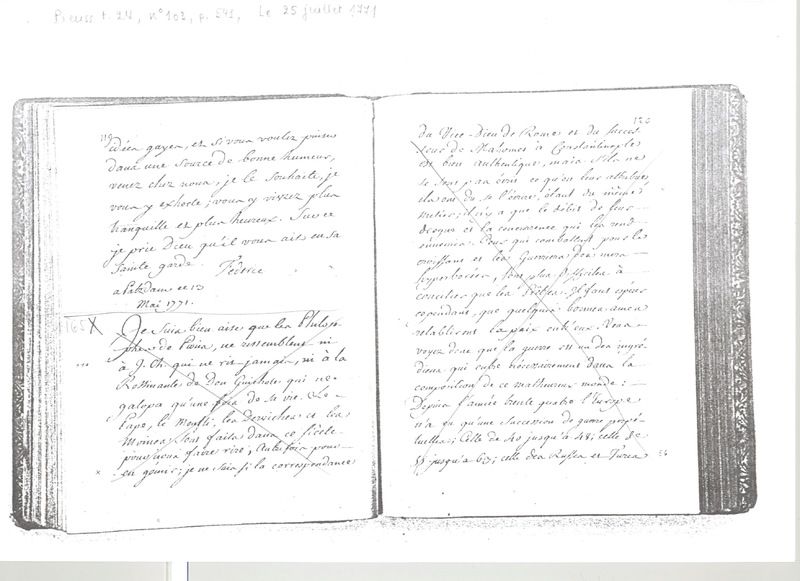 Preuss t. 24, n° 102, p. 541, Le 25 juillet 1771
119
idées gayes, et si vous voulez puiser
dans une source de bonne humeur,
venez chez nous, je le souhaite, je
vous y exhorte; vous y vivrez plus
tranquille et plus heureux. Sur ce
je prie Dieu qu'il vous ait en sa
Sainte garde. Féderic
a Potzdam ce 13
Mai 1771.
165 X
Je suis bien aise que les Philoso-
phes de Paris, ne ressemblent ni
à J. Ch. qui ne rit jamais, ni à la
Rossinante de Don Quichote qui ne
galopa qu'une fois de sa vie. Le
Pape, le Mufti, les Derviches et les
Moines, sont faits dans ce siècle
pour nous faire rire, autrefois pour
en gémir; je ne sais si la correspondance
120
du Vice-Dieu de Rome et du succes
seur de Mahomet à Constantinople
est bien authentique, mais s'ils ne
se sont pas écris ce qu'on leur attribue
ils ont du se l'écrire, étant du même
metier; il n'y a que le débit de leurs
drogues et la concurence qui les rend
ennemis. Ceux qui combattent pour le
croissant et les Guerriers des mers
hyperborées, sont plus difficiles à
concilier que les Prêtres. Il faut espérer
cependant, que quelques bonnes ames
retabliront la paix entr'eux. Vous
voyez donc que la guerre est un des ingré-
diens qui entre nécessairement dans la
composition de ce malheureux monde:
Depuis l'année trente quatre l'Europe
n'a vu qu'une succession de guerre perpé-
tuelles; Celle de 40 jusqu'à 48; celle de
jusqu'à 63; celle des Russes et Turcs